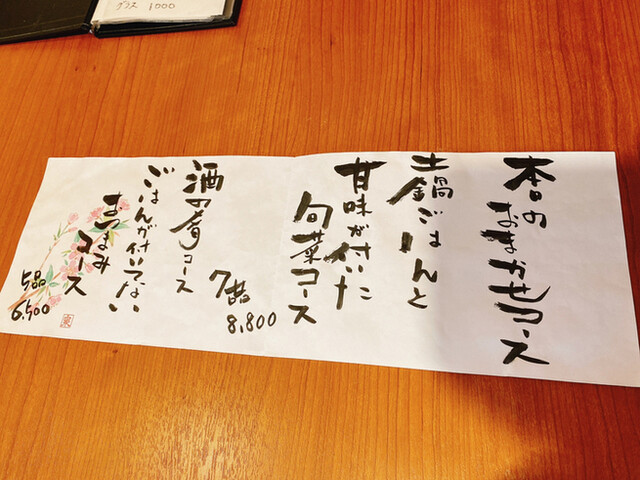 本日の
おまかせコース
土鍋ごはんと
甘味が付いた
旬菜コース
7品
8,800
酒の肴コース
ごはんが付いてない
おつまみ
コース
5品
6,500
グラス 1000